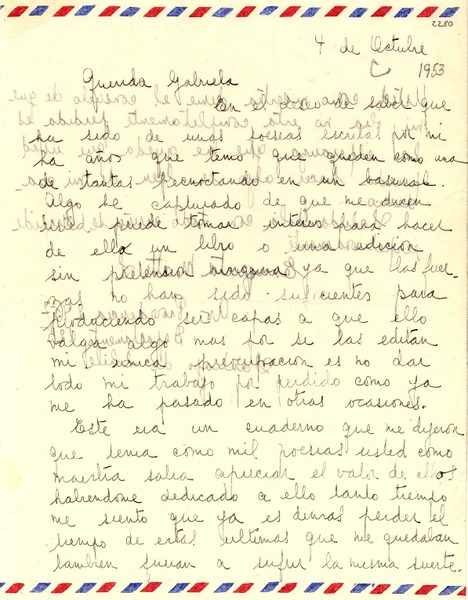 4 de Octubre
1953
Querida Gabriela
En el deceo de saber que
ha sido de unas poesias escritas por mi
ha años que temo que queden como una
de tantas pecnoctando en un basural.
Algo he capturado de que me dicen
usted puede tomar interes para hacer
de ella un libro o una edicion
sin pretension ninguna ya que las fuer-
zas no han sido suficientes para
produciendo ser capas a que ello
valga algo mas por si las editan
mi unica preocupacion es no dar
todo mi trabajo por perdido como ya
me ha pasado en otras ocasiones.
Este era un cuaderno que me dijeron
que tenia como mil poesias usted como
maestra sabra apreciar el valor de ellos
habiendome dedicado a ello tanto tiempo
me siento que ya es demas perder el
tiempo de estas ultimas que me quedaban
tambien fueran a sufrir la misma suerte.